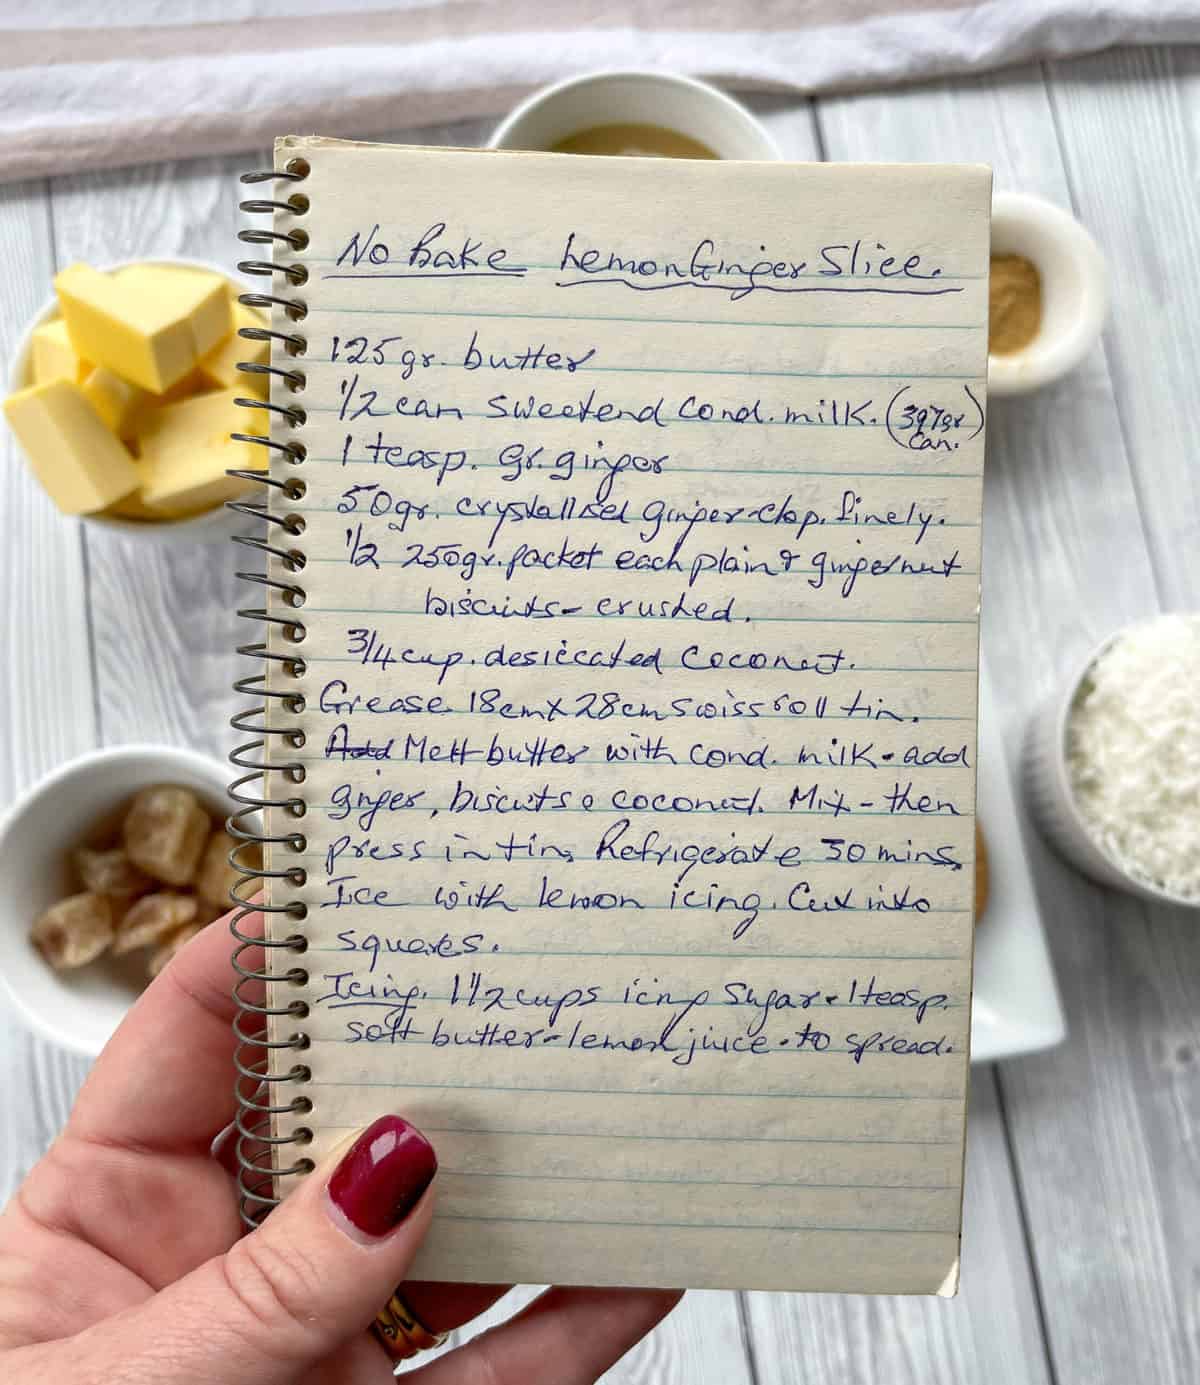 No Bake Lemon Ginger Slice.
125gr. butter
1/2 can sweetend Cond. milk. (397gr
Can.)
1 teasp. gr. ginger
50gr. crystallised ginger-Chop. finely.
1/2 250gr. packet each plain & gingernut
biscuits - crushed.
3/4 cup. desiccated Coconut.
Grease 18cm x 28cm swiss roll tin.
Add Melt butter with cond. milk - add
ginger, biscuits & coconut. Mix - then
press in tin, Refrigerate 30 mins.
Ice with lemon icing. Cut into
squares.
Icing. 1 1/2 cups icing sugar - 1 teasp.
soft butter - lemon juice - to spread.